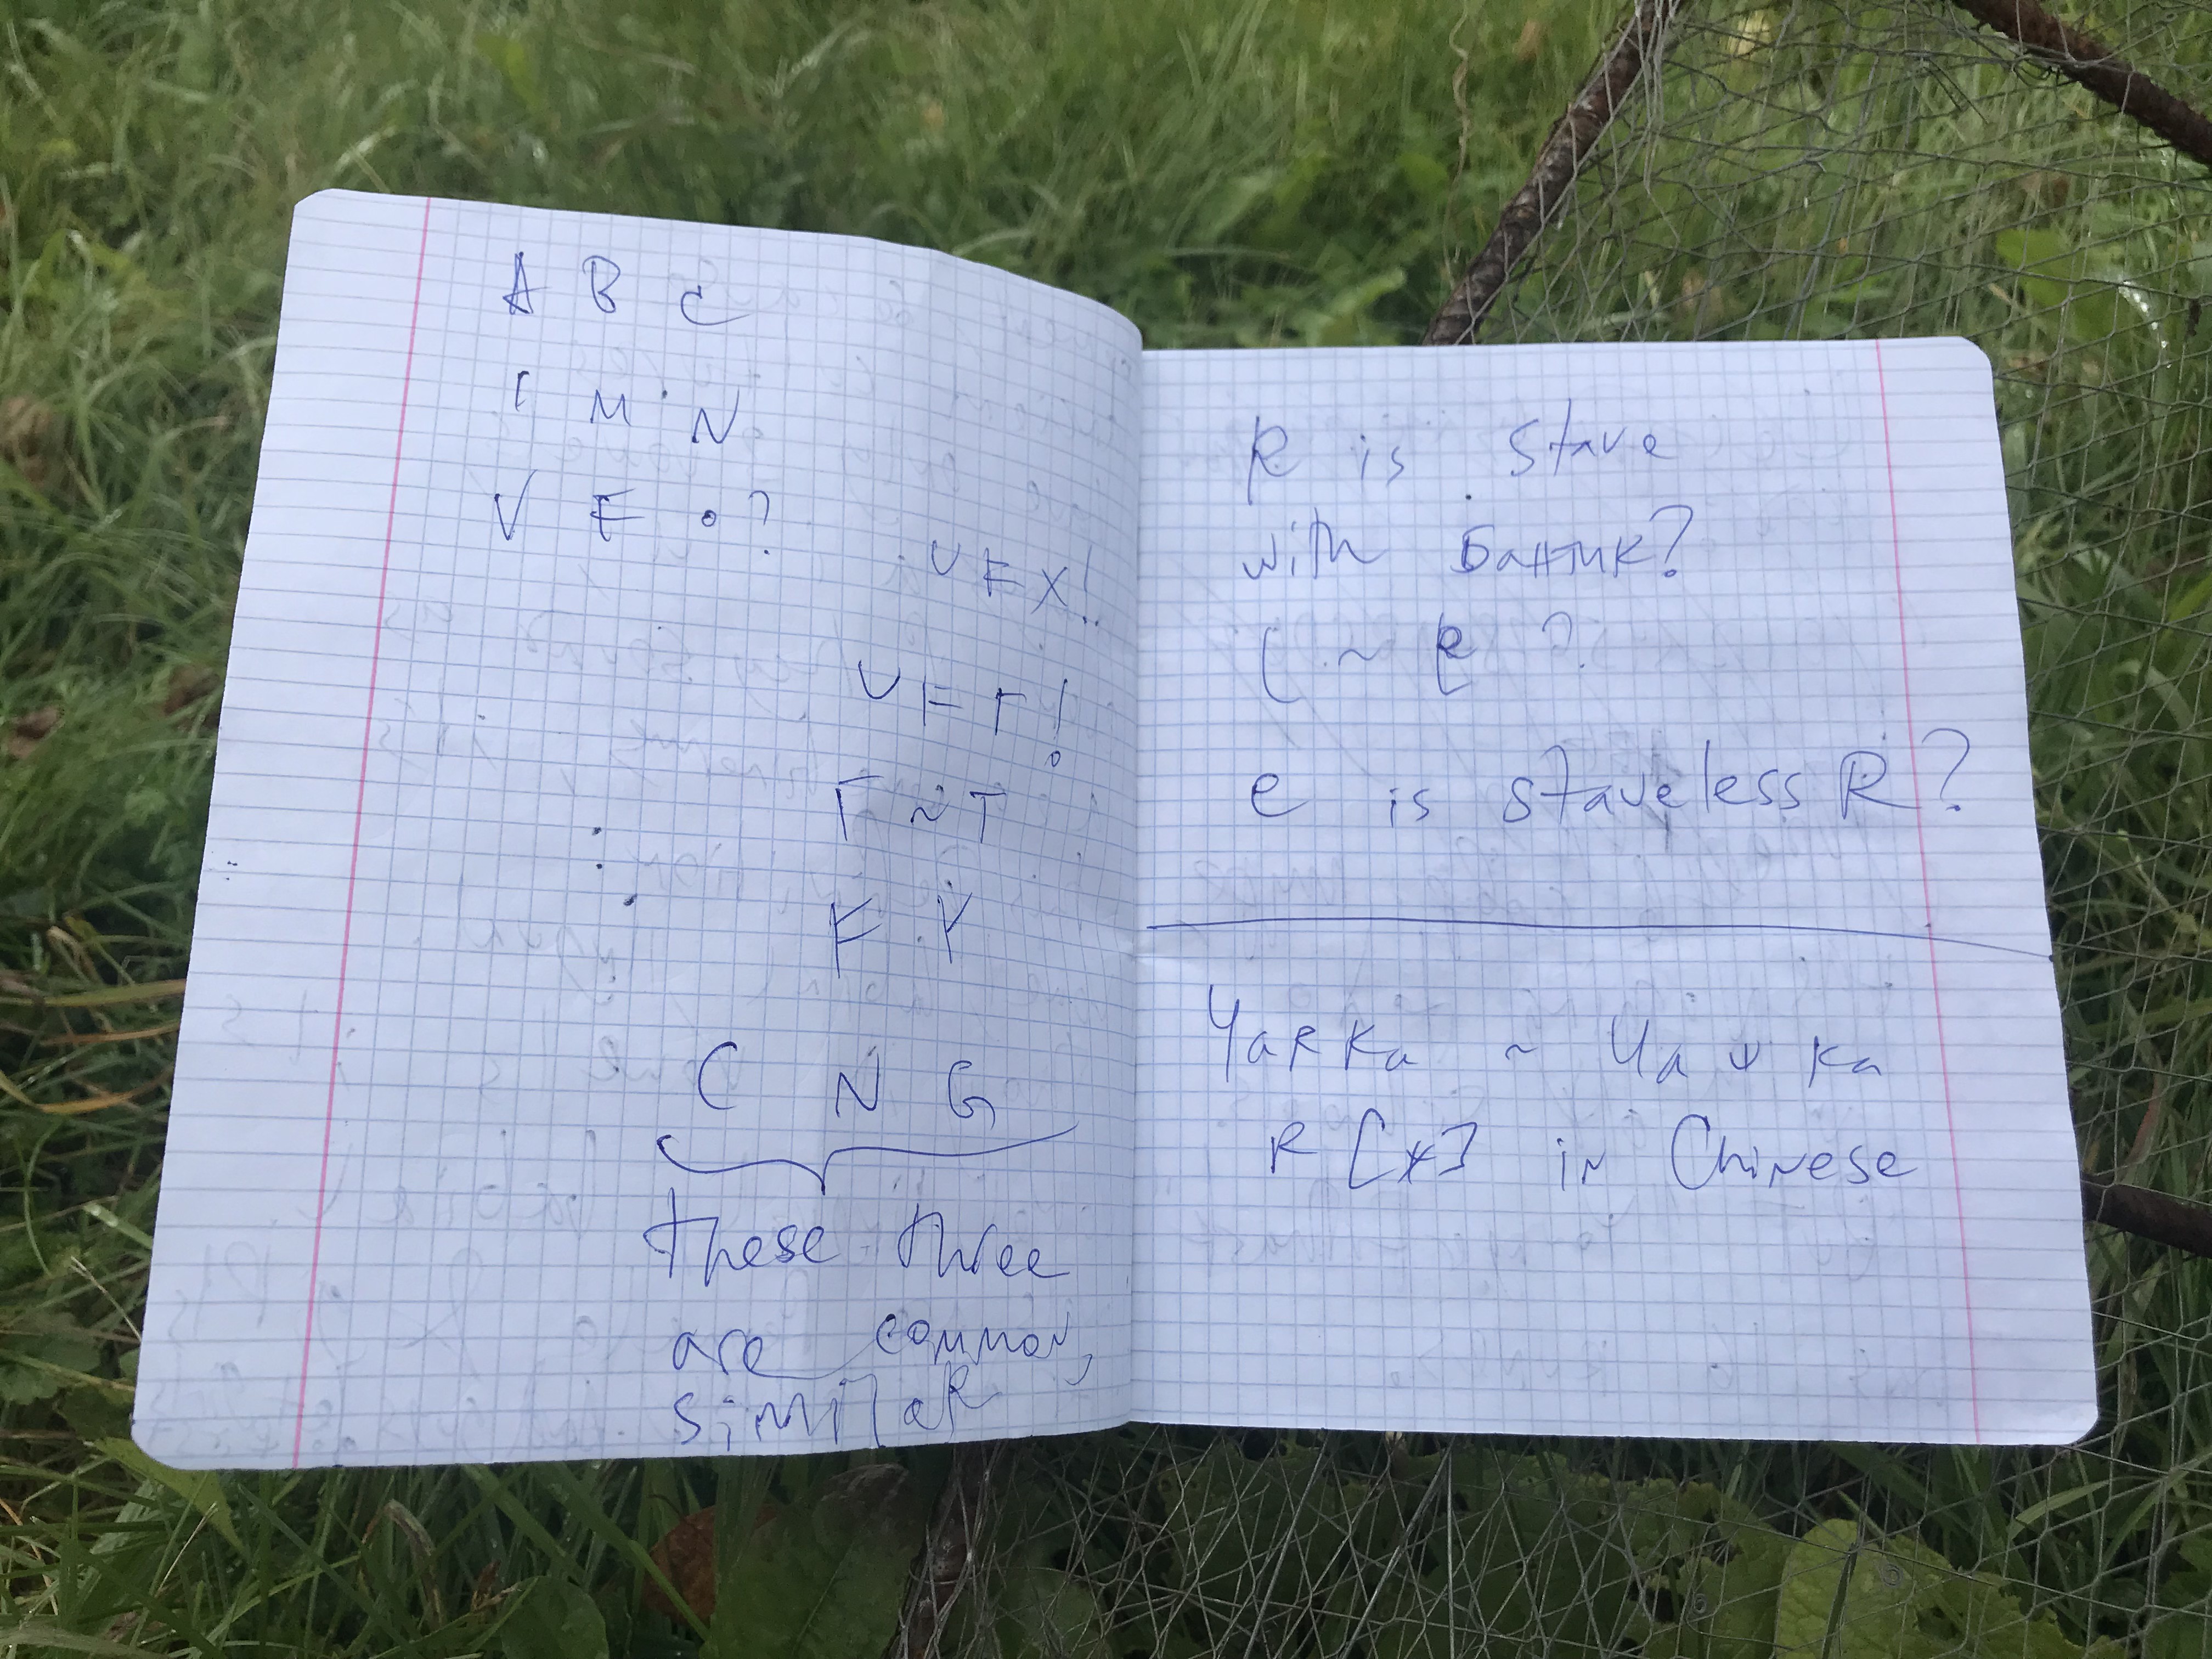 A B C
I M N
V F o?
V F X!
V F T!
Γ ~ T
F Y
C N G
these three
are common,
similaR
R is stave
with бантик?
( ~ R ?
e is staveless R?
ЧаRка ~ Ча ка
R [ ] in Chinese